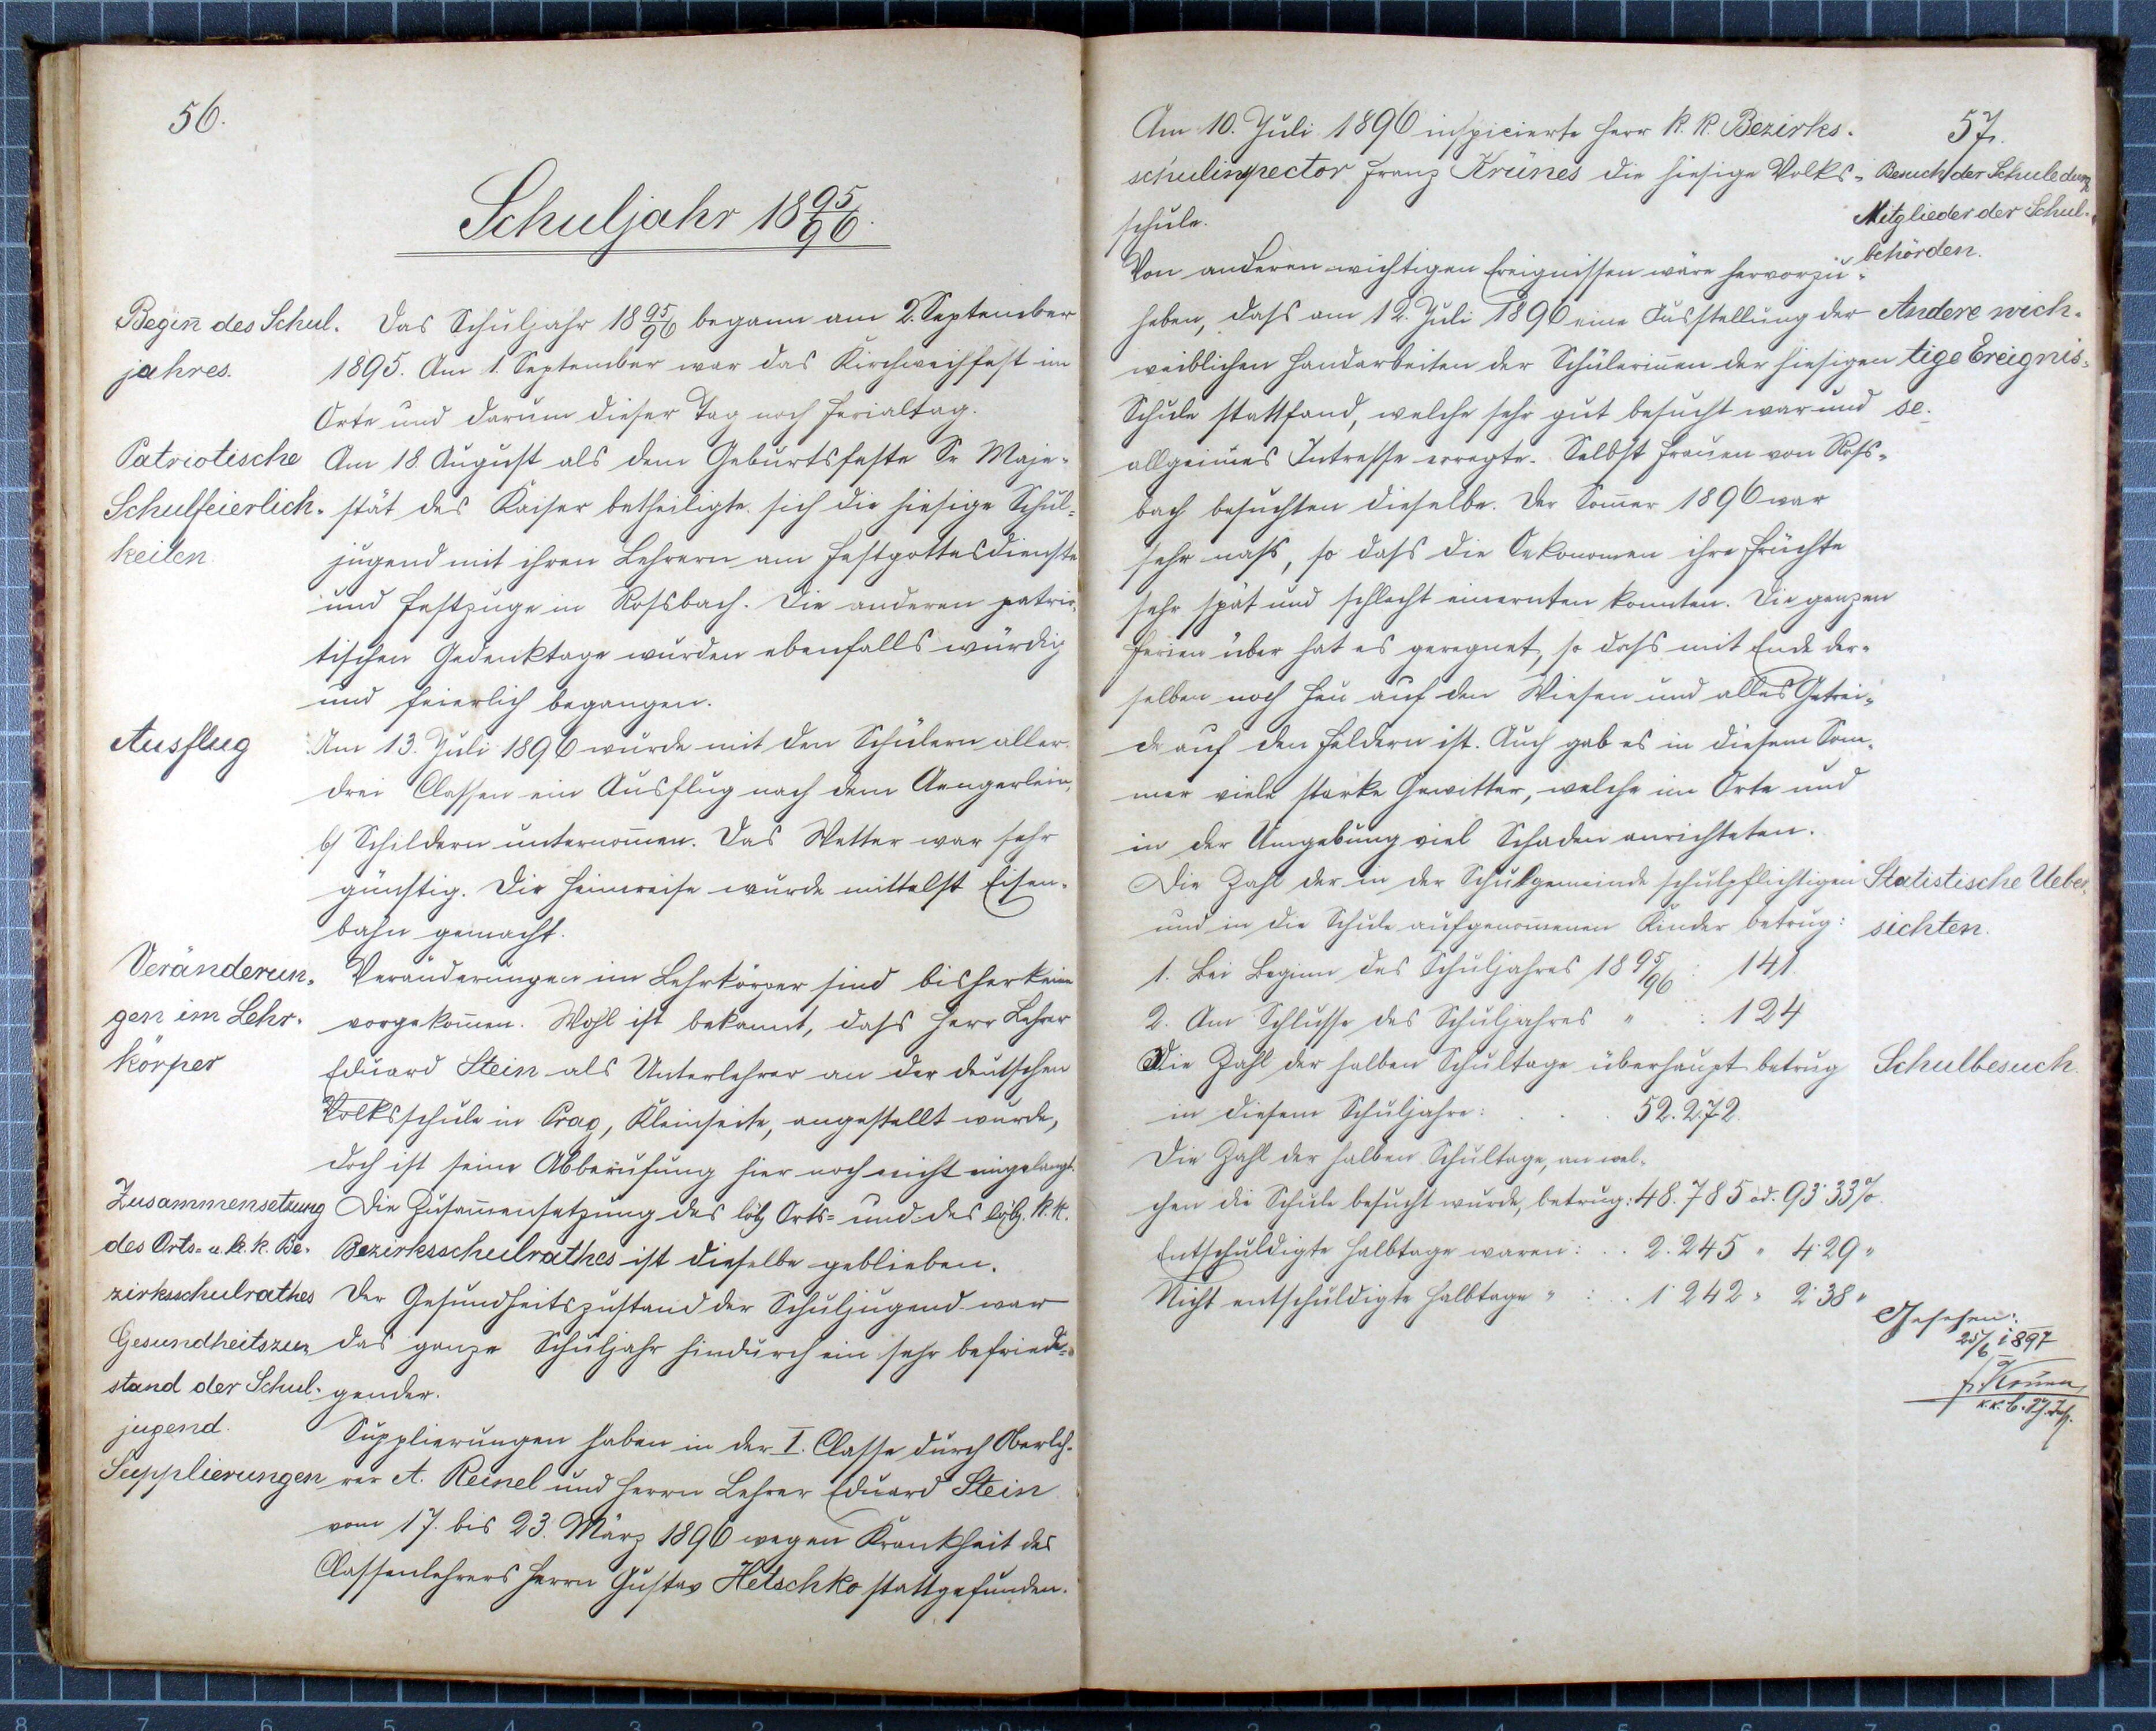 56.
Schuljahr 18 95/96.
Begin̄ des Schul-
jahres.
Das Schuljahr 18 95/96 begann am 2. September
1895. Am 1. September war das Kirchweihfest im
Orte und darum dieser Tag noch Ferialtag.
Patriotische
Schulfeierlich-
keiten
Am 18. August als dem Geburtsfeste Sr Maje-
stät des Kaiser betheiligte sich die hiesige Schul-
jugend mit ihren Lehrern am Festgottesdienste
und Festzuge in Rossbach. Die anderen patrio-
tischen Gedenktage wurden ebenfalls würdig
und feierlich begangen.
Ausflug
Am 13. Juli 1896 wurde mit den Schülern aller
drei Classen ein Ausflug nach dem Aengerlein,
b/ Schildern unternom̄en. Das Wetter war sehr
günstig. Die Heimreise wurde mittelst Eisen-
bahn gemacht.
Veränderun-
gen im Lehr-
körper
Veränderungen im Lehrkörper sind bisher keine
vorgekom̄en. Wohl ist bekannt, dass Herr Lehrer
Eduard Stein als Unterlehrer an der deutschen
Volksschule in Prag, Kleinseite, angestellt wurde,
doch ist seine Abberufung hier noch nicht eingelangt.
Zusammensetzung
des Orts- u. k. k. Be-
zirksschulrathes
Die Zusam̄ensetzung des löbl. Orts- und des löbl. k. k.
Bezirksschulrathes ist dieselbe geblieben.
Gesundheitszu-
stand der Schul-
jugend.
Der Gesundheitszustand der Schuljugend war
das ganze Schuljahr hindurch ein sehr befriedi-
gender.
Supplierungen
Supplierungen haben in der I. Classe durch Oberleh-
rer A. Reinel und Herrn Lehrer Eduard Stein
vom 17. bis 23. März 1896 wegen Krankheit des
Classenlehrers Herrn Gustav Hetschko stattgefunden.
57.
Am 10. Juli 1896 inspicierte Herr k. k. Bezirks-
schulinspector Franz Krünes die hiesige Volks-
schule.
Besuch der Schule durch
Mitglieder der Schul-
behörden.
Von anderen wichtigen Ereignissen wäre hervorzu-
heben, dass am 12. Juli 1896 eine Ausstellung der
weiblichen Handarbeiten der Schülerin̄en der hiesigen
Schule stattfand, welche sehr gut besucht war und
allgeimes Intresse erregte. Selbst Frauen von Ross-
bach besuchten dieselbe. Der Som̄er 1896 war
sehr nass, so dass die Oekonomen ihre Früchte
sehr spät und schlecht einernten konnten. Die ganzen
Ferien über hat es geregnet, so dass mit Ende der-
selben noch Heu auf den Wiesen und alles Getrei-
de auf den Feldern ist. Auch gab es in diesem Som-
mer viele starke Gewitter, welche im Orte und
in der Umgebung viel Schaden anrichteten.
Andere wich-
tige Ereignis-
se.
Die Zahl der in der Schulgemeinde schulpflichtigen
und in die Schule aufgenom̄enen Kinder betrug:
Statistische Ueber-
sichten.
1. Bei Beginn des Schuljahres 18 95/96 : 141.
2. Am Schlusse des Schuljahres " : 124
Die Zahl der halben Schultage überhaupt betrug
in diesem Schuljahre: . . . 52.272.
Schulbesuch.
Die Zahl der halben Schultage, an wel-
chen die Schule besucht wurde, betrug: 48.785 od. 93·33%.
Entschuldigte Halbtage waren: . . 2.245 " 4·29 "
Nicht entschuldigte Halbtage " : . . 1242 " 2·38 "
Gesehen:
25/6 1897
F. Krünes
k. k. B. Sch. Insp.